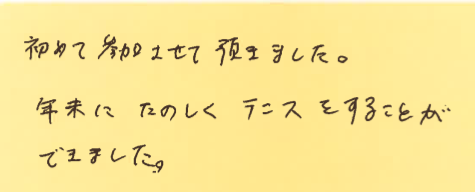 初めて参加させて頂きました。
年末にたのしくテニスをすることが
できました。